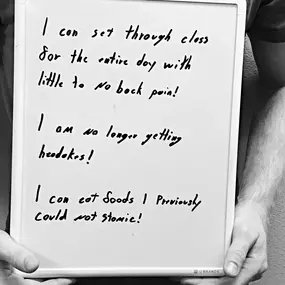 I can set through class
for the entire day with
little to no back pain!
I am no longer getting
headakes!
I can eat foods I Previously
could not stomic!